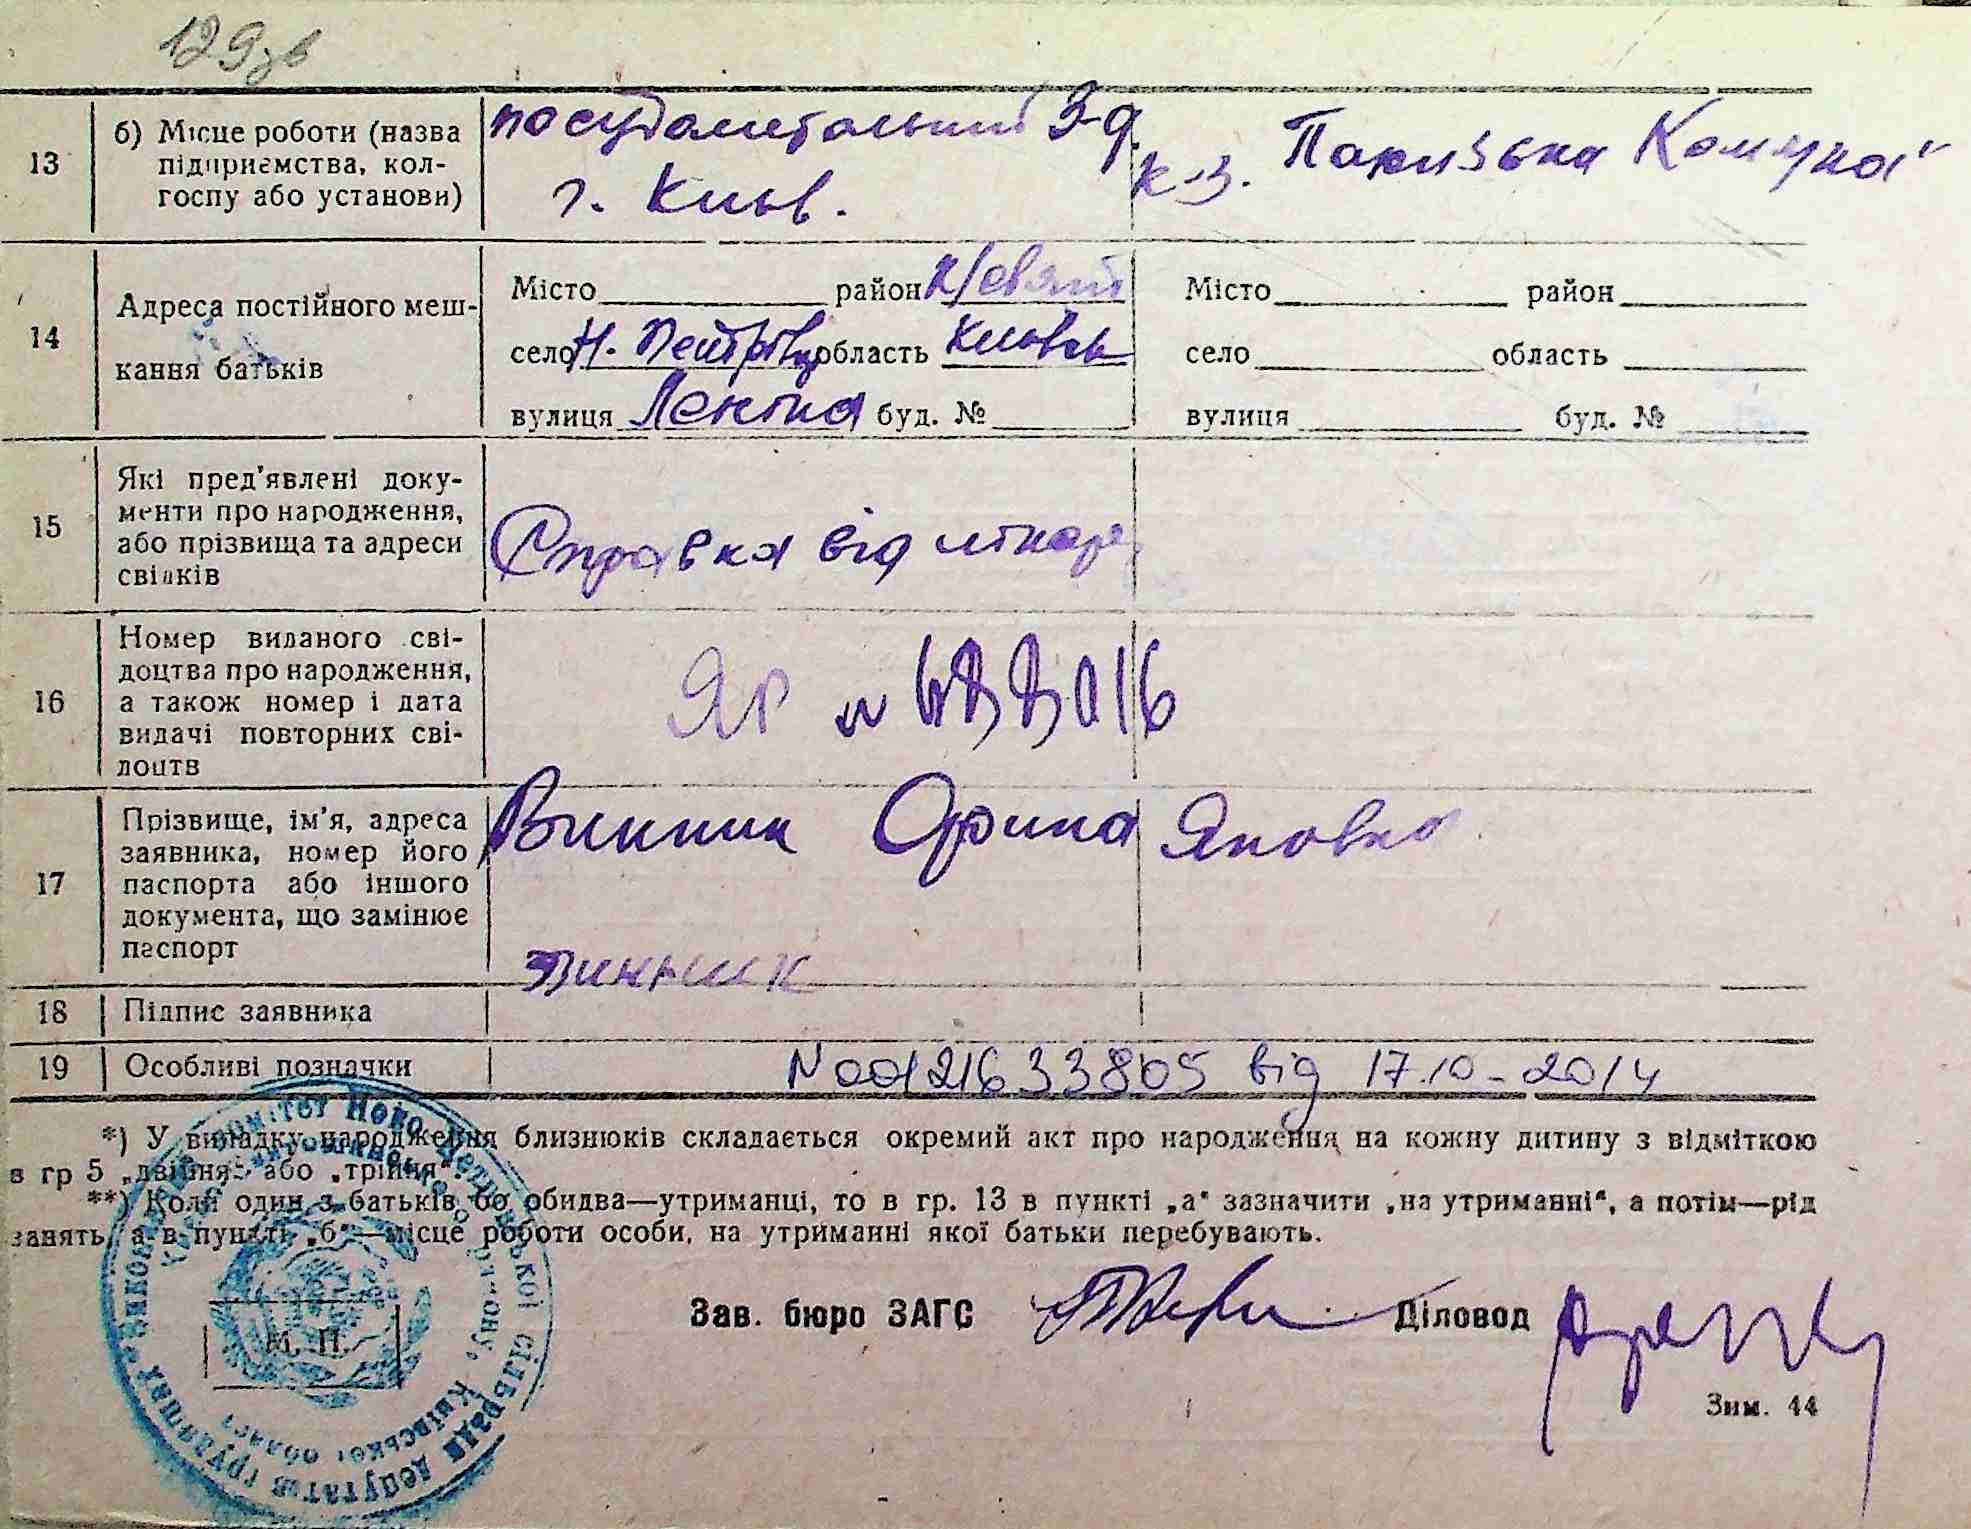 129зв
13 б) Місце роботи (назва підприємства, колгоспу або установи) посудометальний з-д. г. Київ. к-з. Паризька Комуна"
14 Адреса постійного мешкання батьків
Місто район Києвский Місто район
село Н. Петрівці область Київсь село область
вулиця Леніна буд. № вулиця буд. №
15 Які пред'явлені документи про народження, або прізвища та адреси свідків Справка від лікаря
16 Номер виданого свідоцтва про народження, а також номер і дата видачі повторних свідоцтв ЯР №
17 Прізвище, ім'я, адреса заявника, номер його паспорта або іншого документа, що замінює паспорт Винник Орина Яковна
Винник
18 Підпис заявника
19 Особливі позначки N00121633805 від 17.10-2014
*) У випадку народження близнюків складається окремий акт про народження на кожну дитину з відміткою
в гр 5 „двійня" або „трійня".
**) Коли один з батьків бо обидва—утриманці, то в гр. 13 в пункті „а" зазначити „на утриманні", а потім—рід
занять, а в пункті „б"—місце роботи особи, на утриманні якої батьки перебувають.
Зав. бюро ЗАГС Діловод
М. П.
Зим. 44